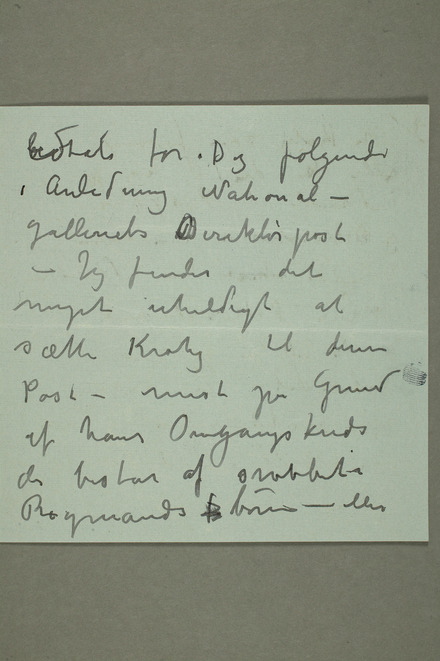 for Dig følgende
i Anledning National-
galleriets Direktørpost
- Jeg finder det
meget uheldigt at
sætte Krohg til denne
Post - mest på Grund
af hans Omgangskreds
der består af snobbete
Rigmands børn - eller